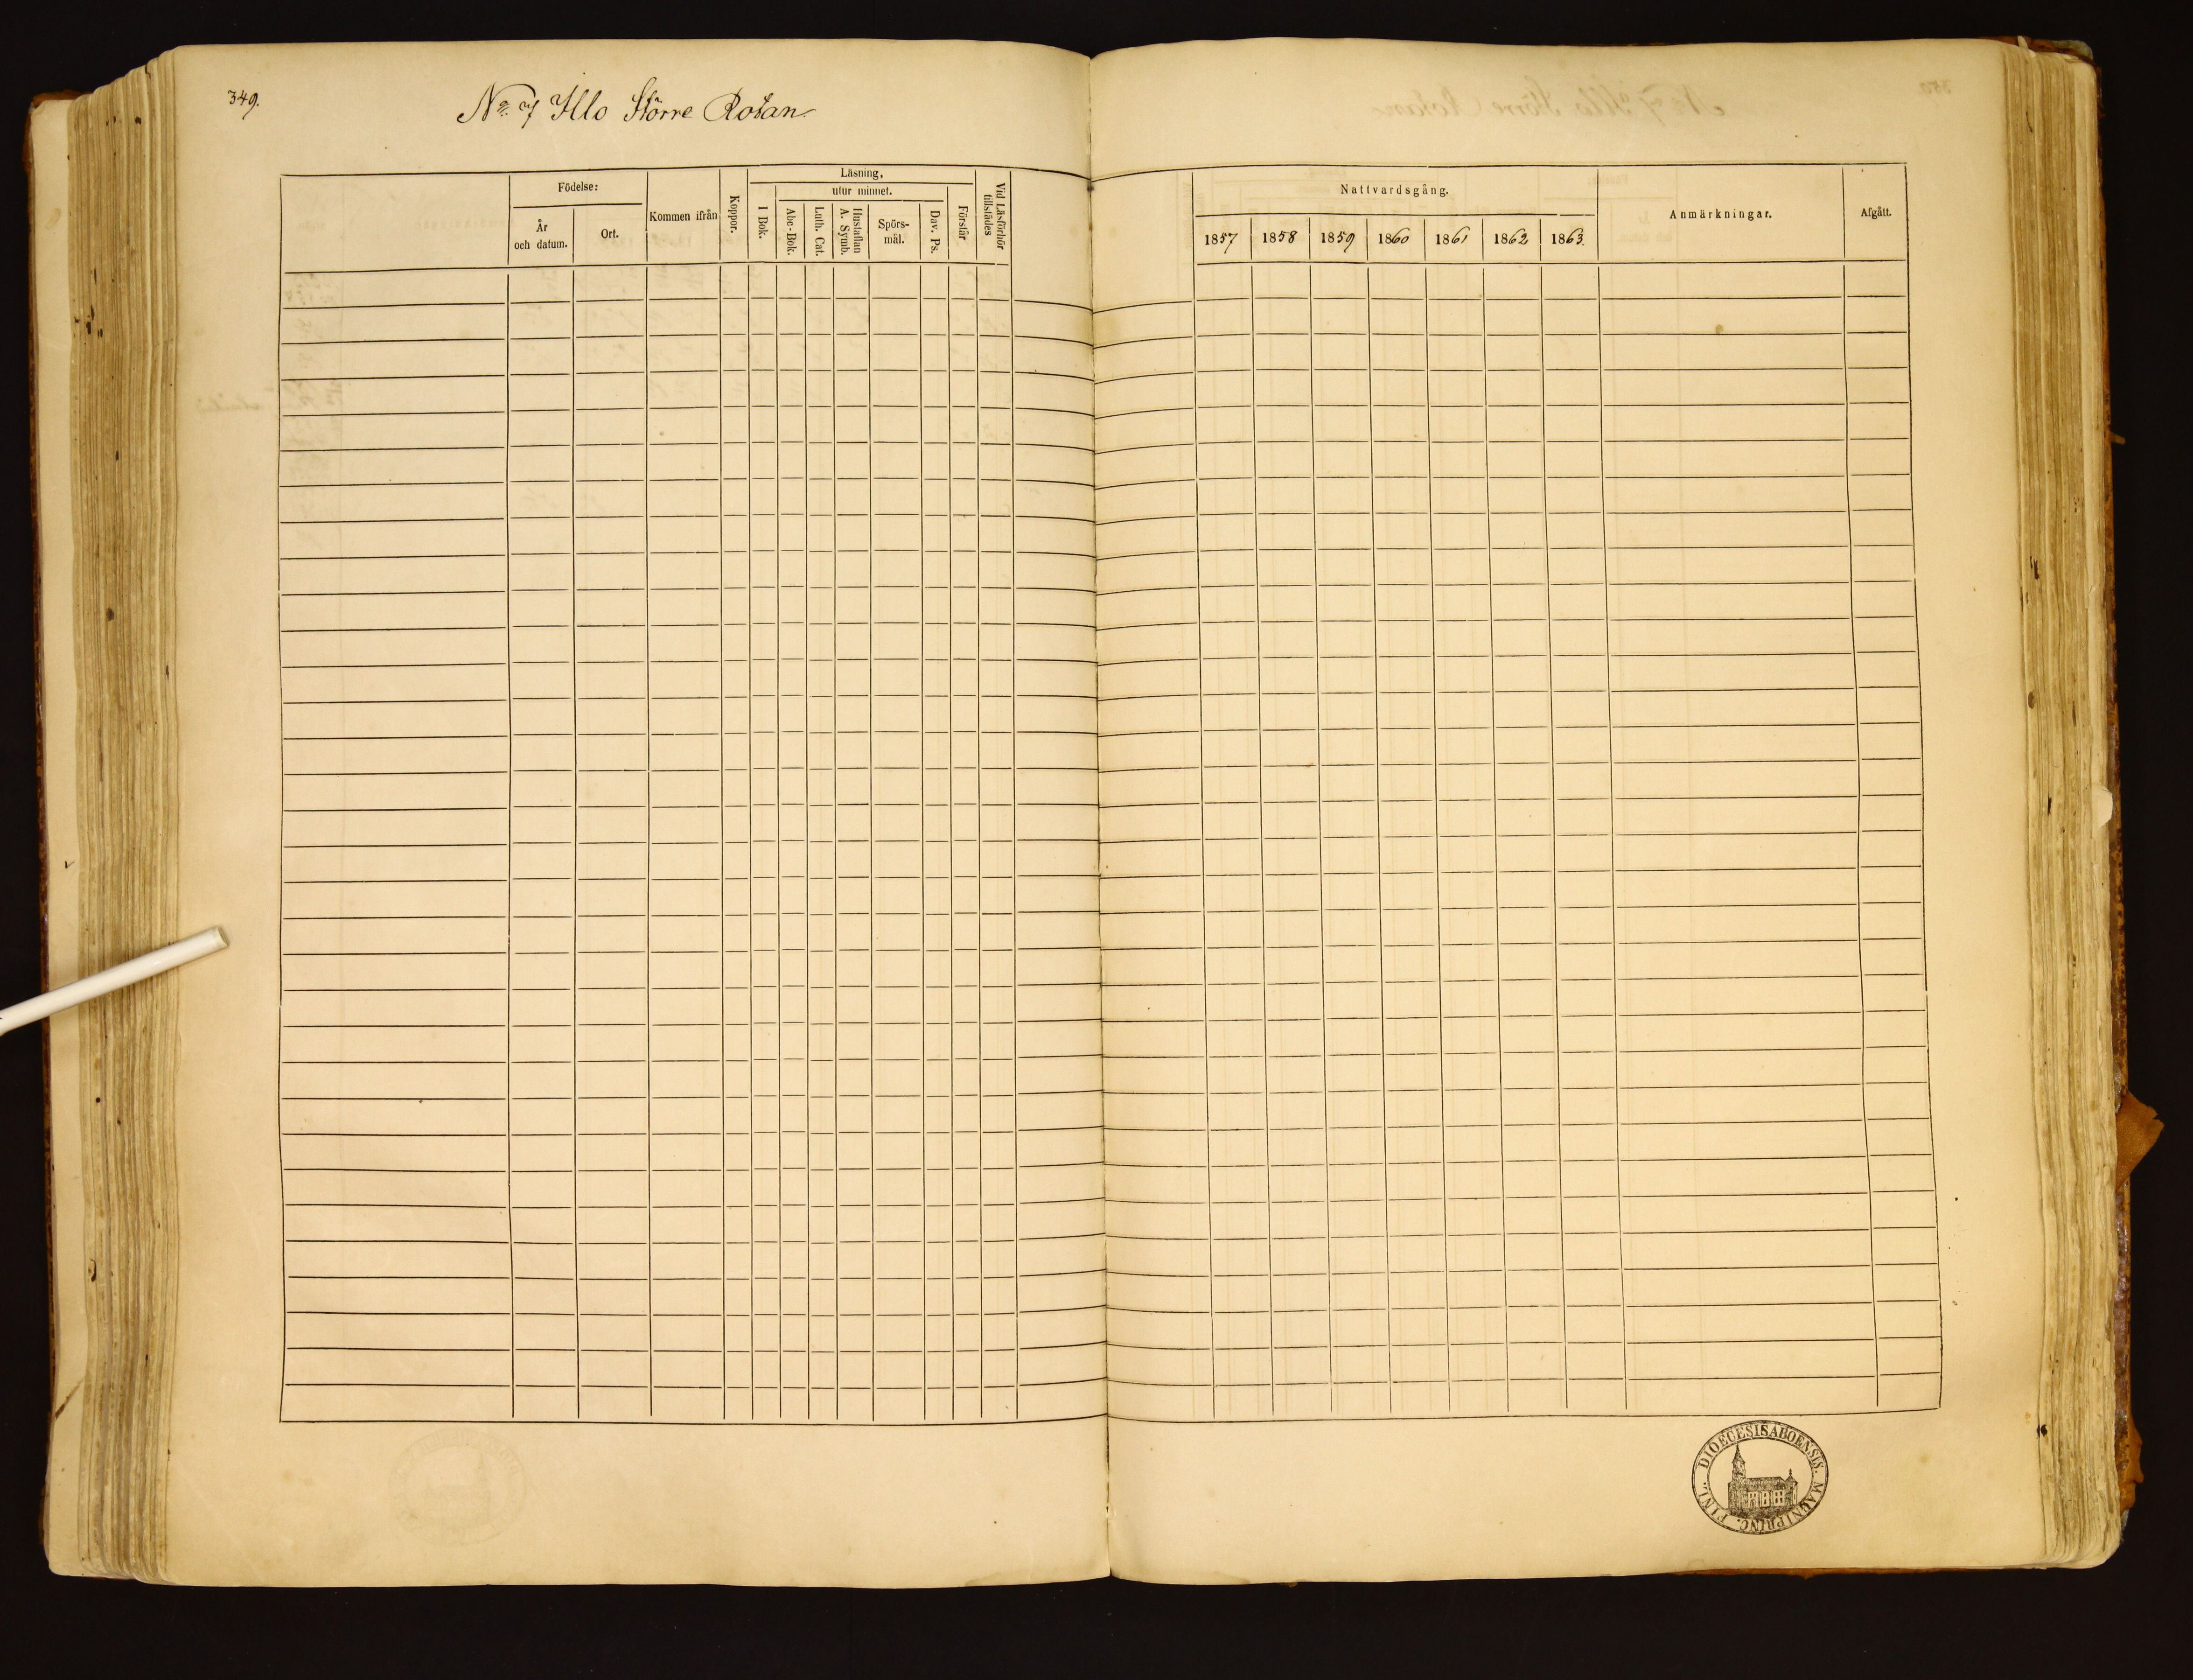 349.
No 7 Illo Större Rotan
Födelse:
År
och datum.
Ort.
Kommen ifrån
Koppor.
Läsning,
I Bok.
utur minnet.
Abc-Bok.
Luth. Cat.
Hustaflan
A. Symb.
Spörs-
mål.
Dav. Ps.
Förstår
Vid Läsförhör
tillstädes
Nattvardsgång.
1857 1858 1859 1860 1861 1862 1863.
Anmärkningar.
Afgått.
DIOECESIS ABOENSIS. MAGNI PRINC. FINL.